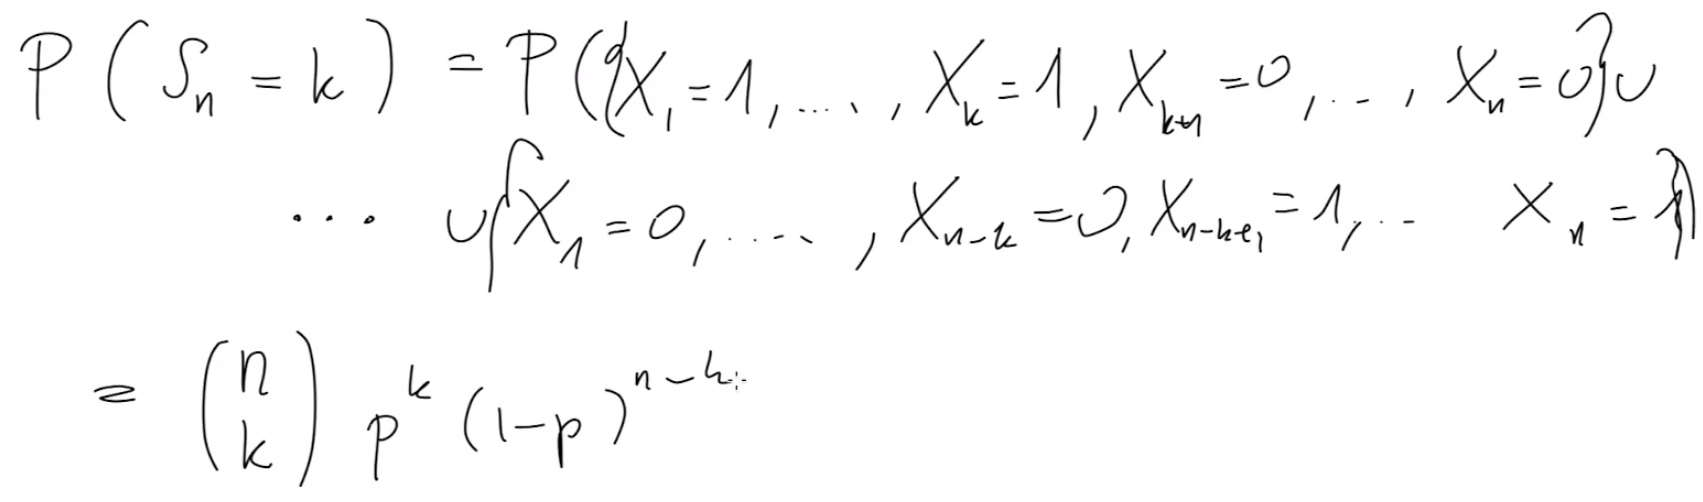 P(Sₙ = k) = P({X₁ = 1, ..., Xₖ = 1, Xₖ₊₁ = 0, ..., Xₙ = 0} ∪
... ∪ {X₁ = 0, ..., Xₙ₋ₖ = 0, Xₙ₋ₖ₊₁ = 1, ... Xₙ = 1})
= \binom{n}{k} p^k (1-p)^{n-k}